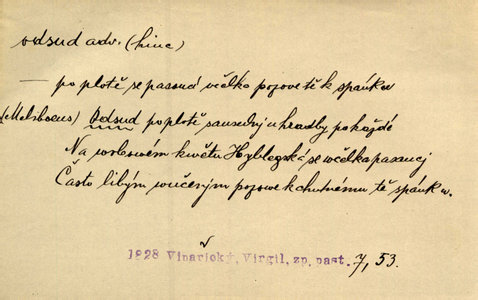 odsud adv. (hinc)
— po plotě se pasoucí včelka pozove tě k spánku
(Meliboeus) Odsud po plotě sousedy u hradby pokaždé
Na vrbovém květu Hyblejská se včelka pasouci
Často libým bučením pozove k chutnému tě spánku.
1828 Vinařický, Virgil, zp. past. 7, 53.